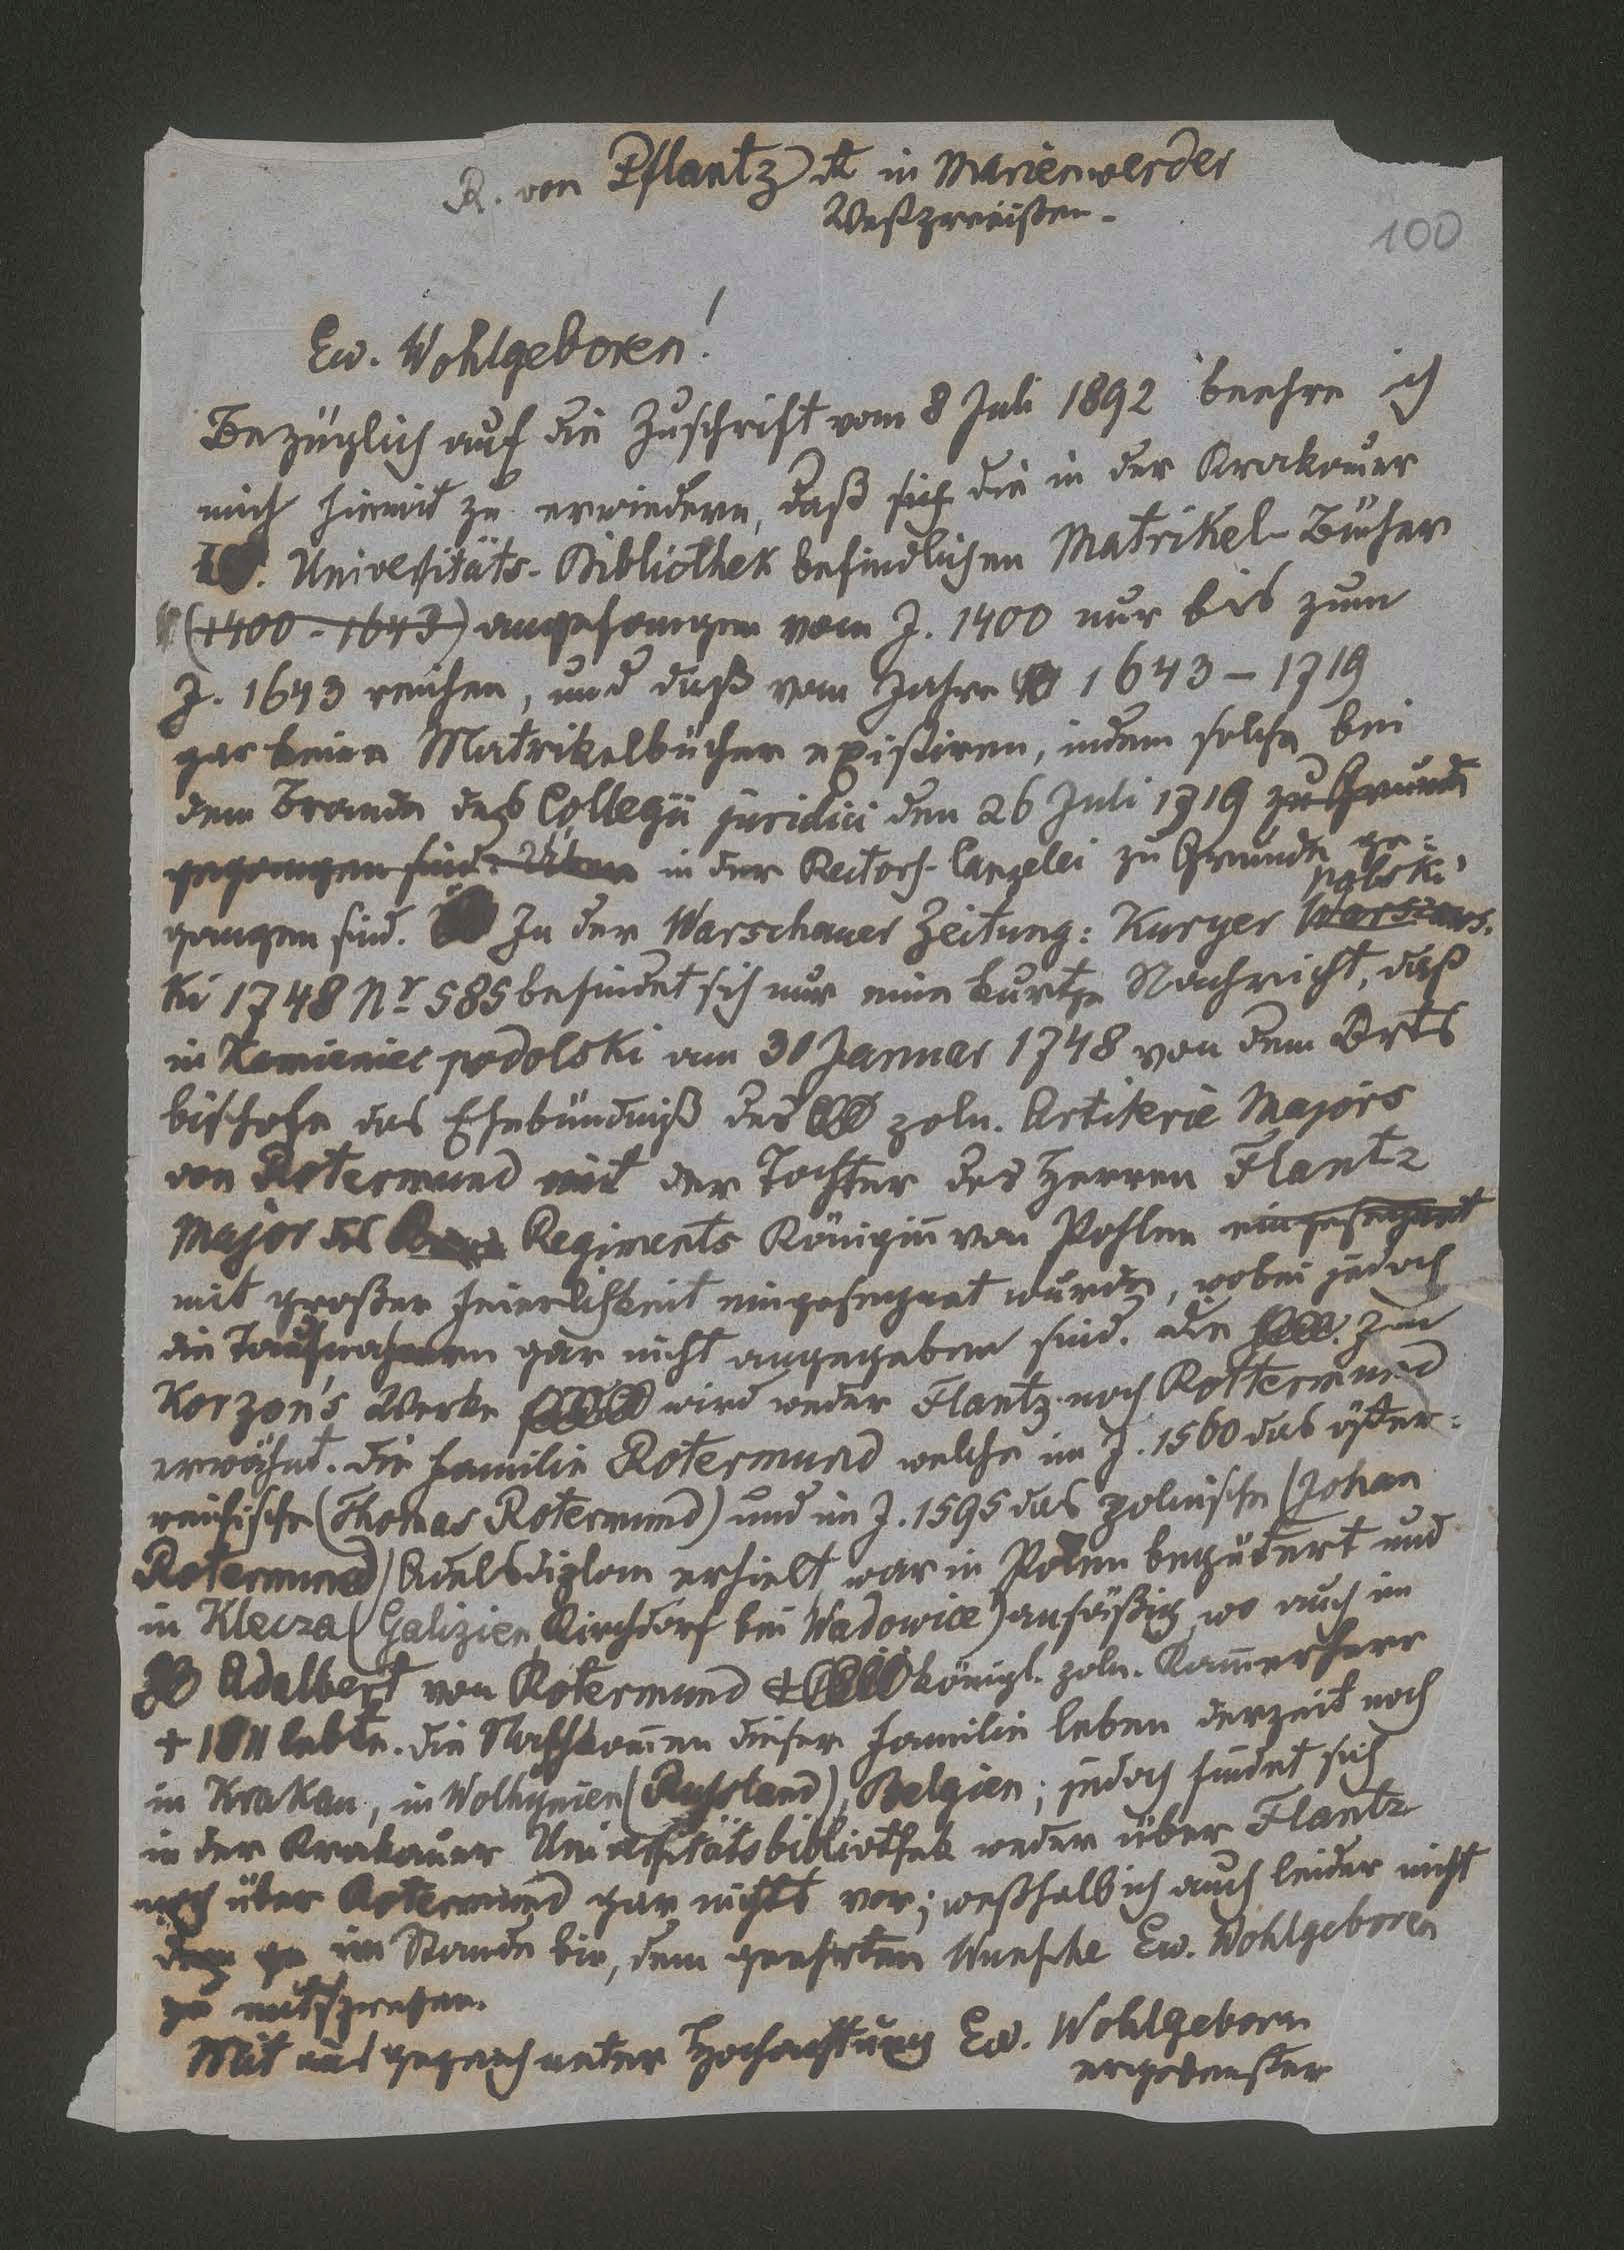 R. von Pflantz in Marienwerder
Westpreußen.
100
Ew. Wohlgeboren!
Bezüglich auf die Zuschrift vom 8 Juli 1892 beehre ich
mich hiemit zu erwiedern, daß sich die in der Krakauer
Universitäts-Bibliothek befindlichen Matrikel-Bücher
(1400-1643) angefangen vom J. 1400 nur bis zum
J. 1643 reichen, und daß vom Jahre 1643-1719
gar keine Matrikelbücher existiren, indem solche bei
dem Brande des Collegii juridici den 26 Juli 1719 zu Grunde
gegangen sind. in der Rectors-Canzelei zu Grunde ge-
gangen sind. In der Warschauer Zeitung: Kuryer polski Warszaws-
ki 1748 Nr 585 befindet sich nur eine kurtze Nachricht, daß
in Kamieniec podolski am 30 Januar 1748 von dem Orts
bischofe das Ehebündniß des poln. Artilerie Majors
von Rotermund mit der Tochter des Herren Flantz
Major des Regiments Königin von Pohlen eingesegnet
mit großer Feierlichkeit eingesegnet wurde, wobei jedoch
die Taufnahmen gar nicht angegeben sind. Die In
Korzon's Werke wird weder Flantz noch Rottermund
erwähnt. Die Familie Rotermund welche im J. 1560 das öster-
reichische (Thomas Rotermund) und im J. 1595 das polnische (Johan
Rotermund) Adelsdiplom erhielt, war in Polen begütert und
in Klecza (Galizien Kirchdorf bei Wadowice) ansäßig, wo auch im
Adalbert von Rotermund königl. poln. Kammerherr
+ 1811 lebte. Die Nachkommen dieser Familie leben derzeit noch
in Krakau, in Wolhynien (Russland), Belgien; jedoch findet sich
in der Krakauer Universitätsbibliothek weder über Flantz
noch über Rotermund gar nichts vor; weßhalb ich auch leider nicht
im Stande bin, dem geehrten Wunsche Ew. Wohlgeboren
zu entsprechen.
Mit ausgezeichneter Hochachtung Ew. Wohlgeboren
ergebenster